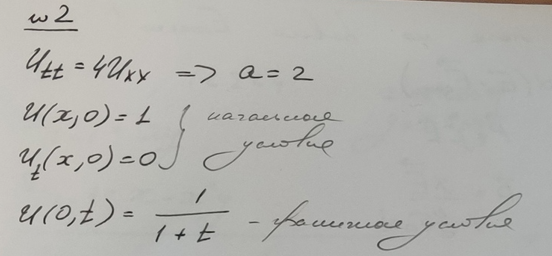 w2
Utt = 4Uxx => a = 2
U(x,0) = 1 } начальное
Ut(x,0) = 0 } условие
U(0,t) = 1/(1+t) - граничное условие